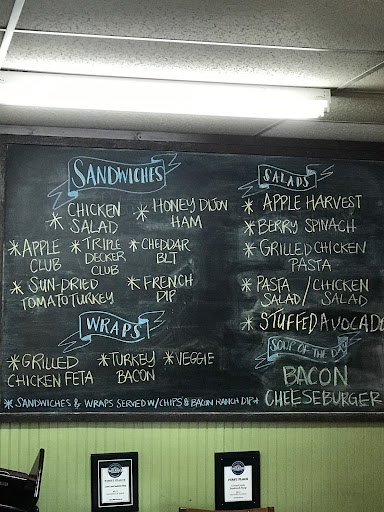 SANDWICHES
* CHICKEN SALAD
* HONEY DIJON HAM
* APPLE CLUB
* TRIPLE DECKER CLUB
* CHEDDAR BLT
* SUN-DRIED TOMATO TURKEY
* FRENCH DIP
WRAPS
* GRILLED CHICKEN FETA
* TURKEY BACON
* VEGGIE
* SANDWICHES & WRAPS SERVED W/CHIPS & BACON RANCH DIP *
SALADS
* APPLE HARVEST
* BERRY SPINACH
* GRILLED CHICKEN PASTA
* PASTA SALAD / CHICKEN SALAD
* STUFFED AVOCADO
SOUP OF THE DAY
BACON
CHEESEBURGER
FIRST PLACE
FIRST PLACE